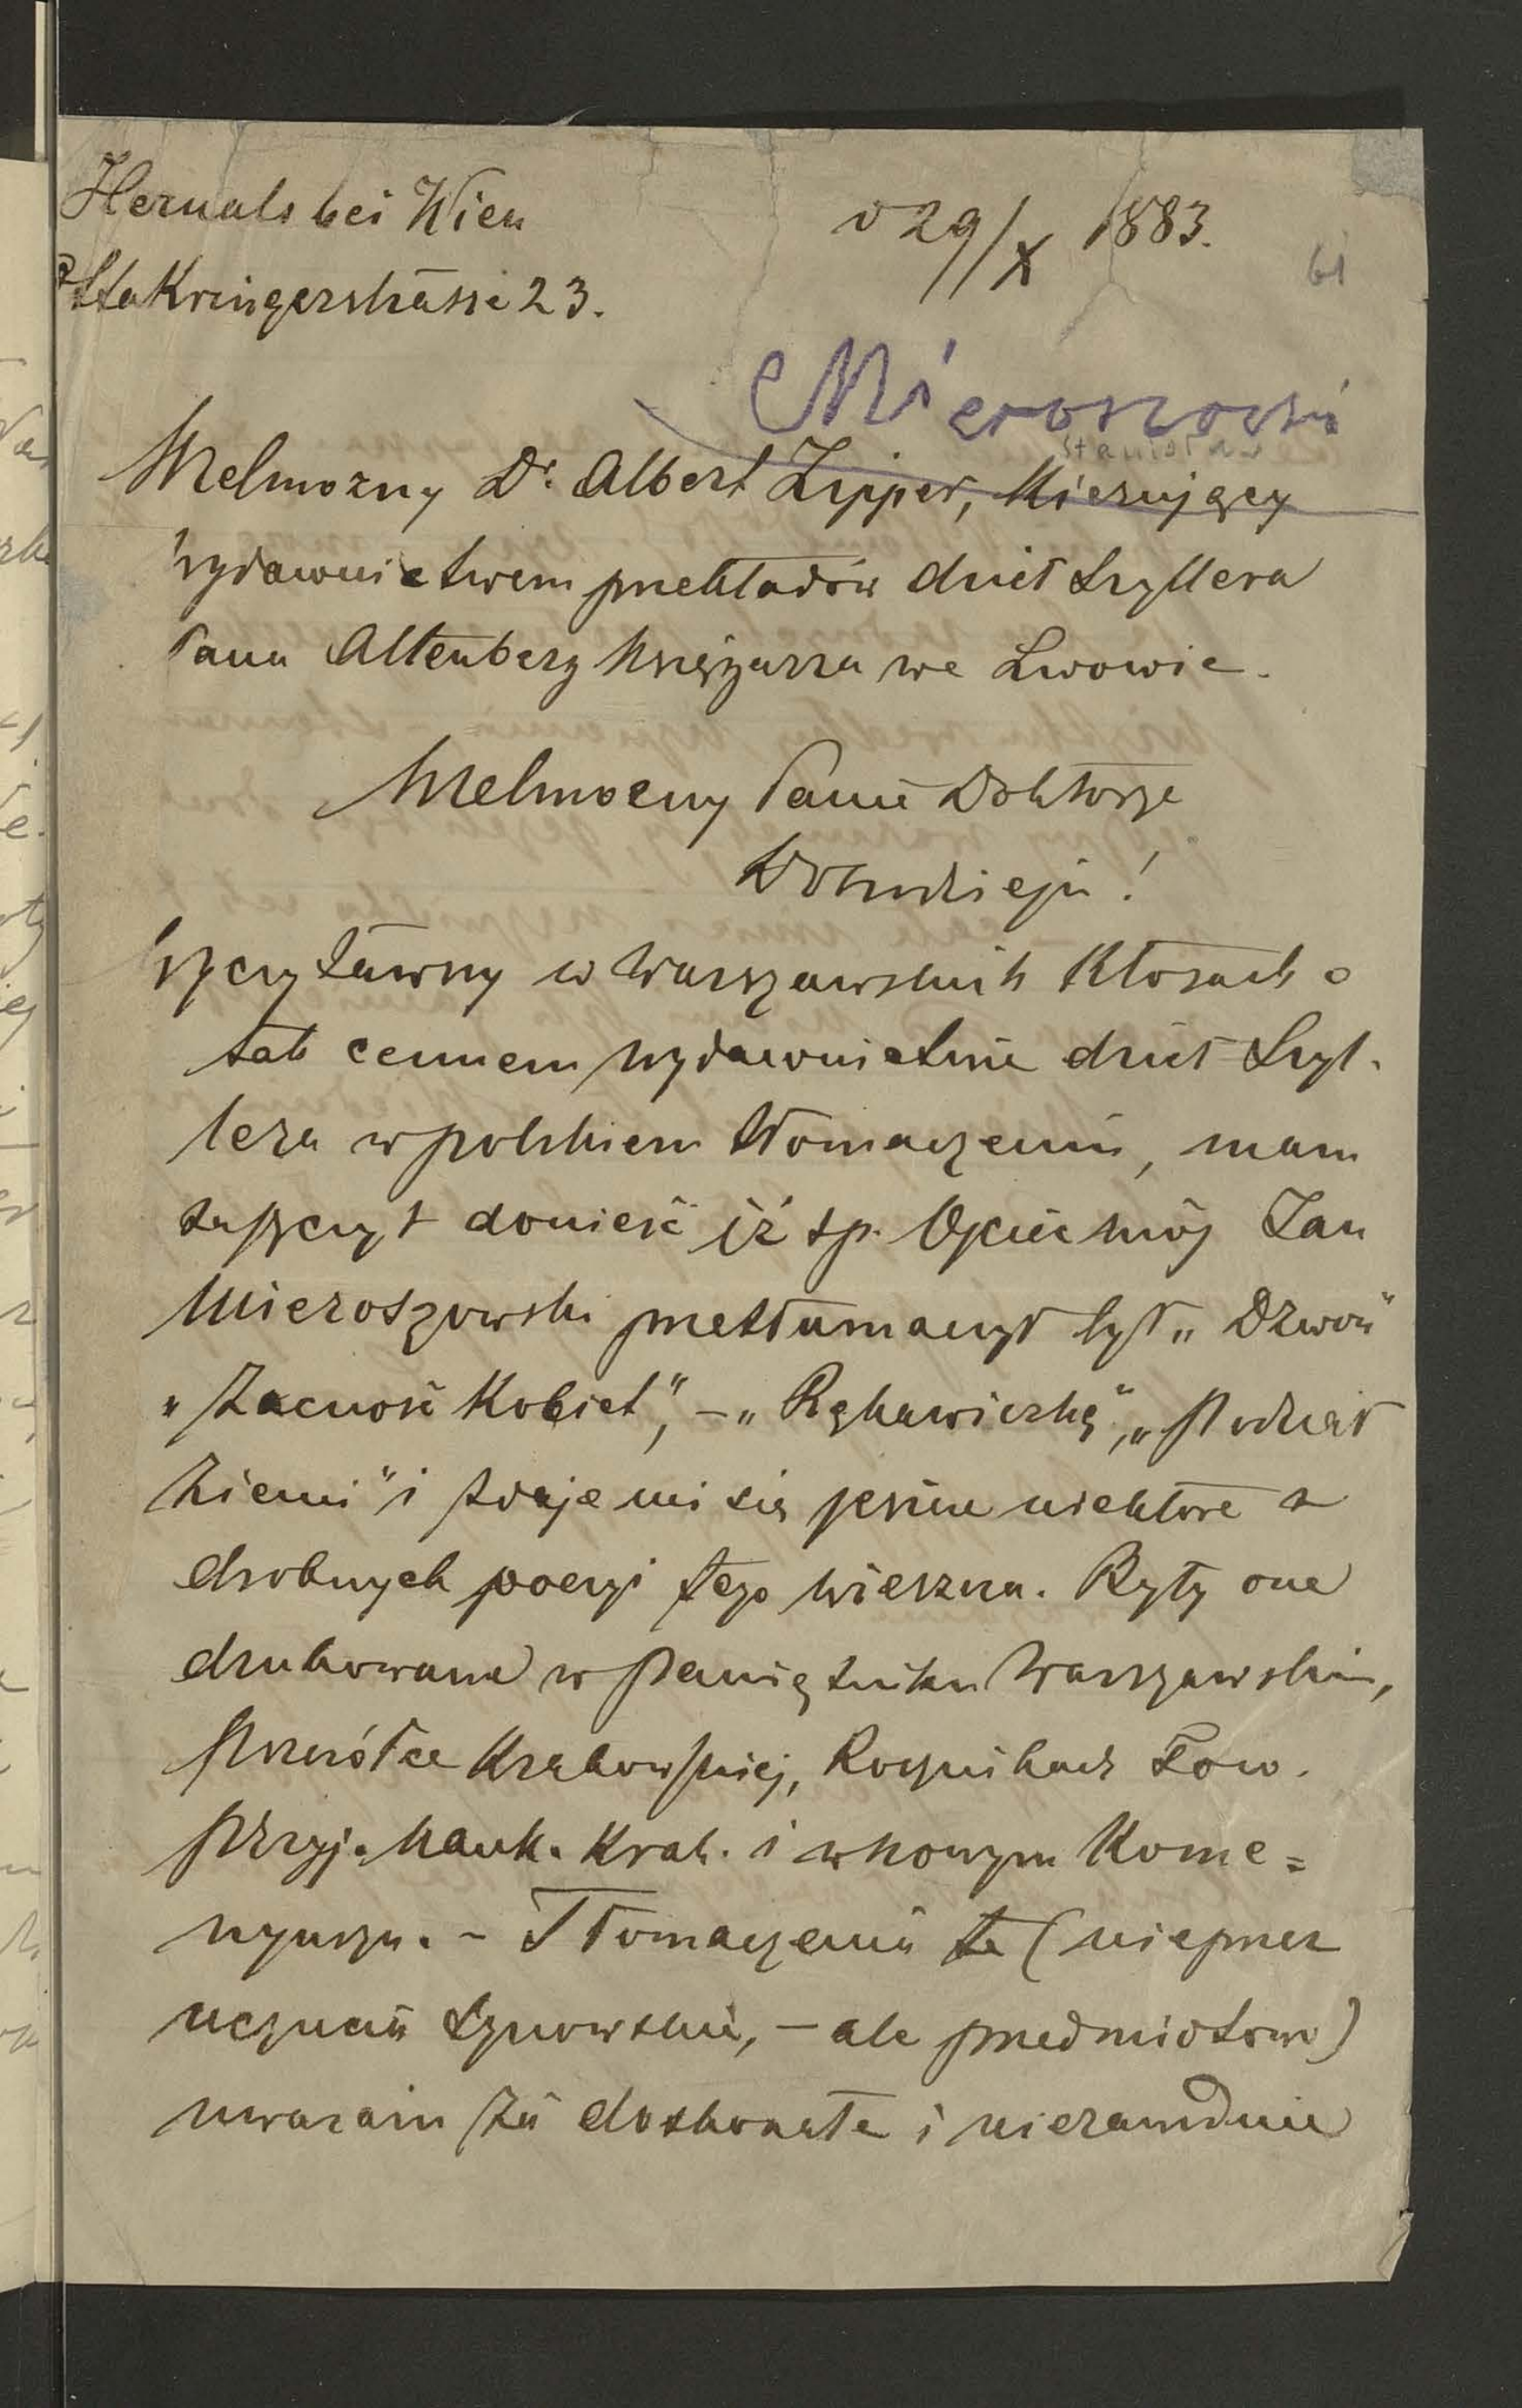 Hernals bei Wien
d 29/X 1883.
61
Ottakringerstrasse 23.
Mieroszowski
Stanisław
Wielmożny Dr. Albert Zipper, Kierujący
wydawnictwem przekładów dzieł Szyllera
Pana Altenberg Księgarza we Lwowie.
Wielmożny Panie Doktorze
Dobrodzieju!
Wyczytawszy w Warszawskich Kłosach o
tak cennem wydawnictwie dzieł Szyl-
lera w polskiem tłomaczeniu, mam
zaszczyt donieść iż śp. Ojciec mój Jan
Mieroszowski przetłumaczył był „Dzwon"
„Zacność Kobiet", – „Rękawiczkę", „Podział
Ziemi" i zdaje mi się jeszcze niektóre z
drobnych poezyi tego wieszcza. Były one
drukowane w Pamiętniku Warszawskim,
Pszczółce Krakowskiej, Rocznikach Tow.
Przyj. Nauk. Krak. i w nowym Kome=
nyuszu. – Tłomaczenia te (nie przez
uczucie synowskie, – ale przedmiotowo)
uważam za doskonałe i niezawodnie